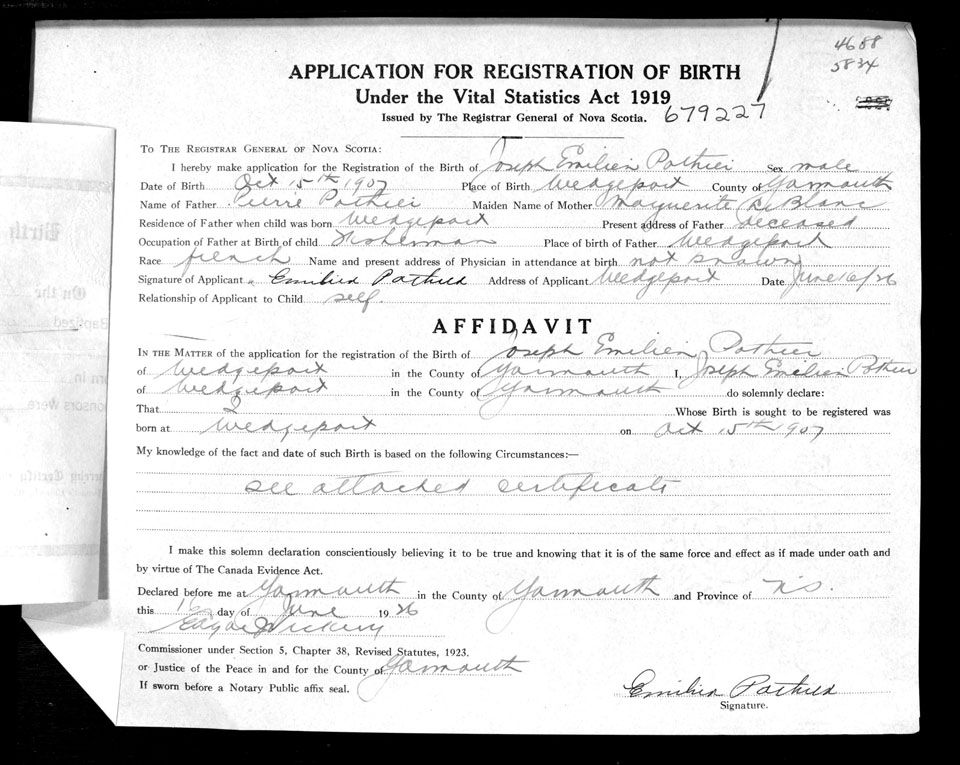 4688
5834
APPLICATION FOR REGISTRATION OF BIRTH
Under the Vital Statistics Act 1919
Issued by The Registrar General of Nova Scotia. 679227
To The Registrar General of Nova Scotia:
I hereby make application for the Registration of the Birth of Joseph Emilien Pothier Sex male
Date of Birth Oct 15th 1907 Place of Birth Wedgeport County of Yarmouth
Name of Father Pierre Pothier Maiden Name of Mother Marguerite LeBlanc
Residence of Father when child was born Wedgeport Present address of Father deceased
Occupation of Father at Birth of child Fisherman Place of birth of Father Wedgeport
Race french Name and present address of Physician in attendance at birth not known
Signature of Applicant Emilien Pothier Address of Applicant Wedgeport Date June 16/26
Relationship of Applicant to Child self.
AFFIDAVIT
In the Matter of the application for the registration of the Birth of Joseph Emilien Pothier
of Wedgeport in the County of Yarmouth I, Joseph Emilien Pothier
of Wedgeport in the County of Yarmouth do solemnly declare:
That I Whose Birth is sought to be registered was
born at Wedgeport on Oct 15th 1907
My knowledge of the fact and date of such Birth is based on the following Circumstances:—
see attached certificate
I make this solemn declaration conscientiously believing it to be true and knowing that it is of the same force and effect as if made under oath and
by virtue of The Canada Evidence Act.
Declared before me at Yarmouth in the County of Yarmouth and Province of N.S.
this 16 day of June 1926
Commissioner under Section 5, Chapter 38, Revised Statutes, 1923.
or Justice of the Peace in and for the County of Yarmouth
If sworn before a Notary Public affix seal.
Emilien Pothier
Signature.